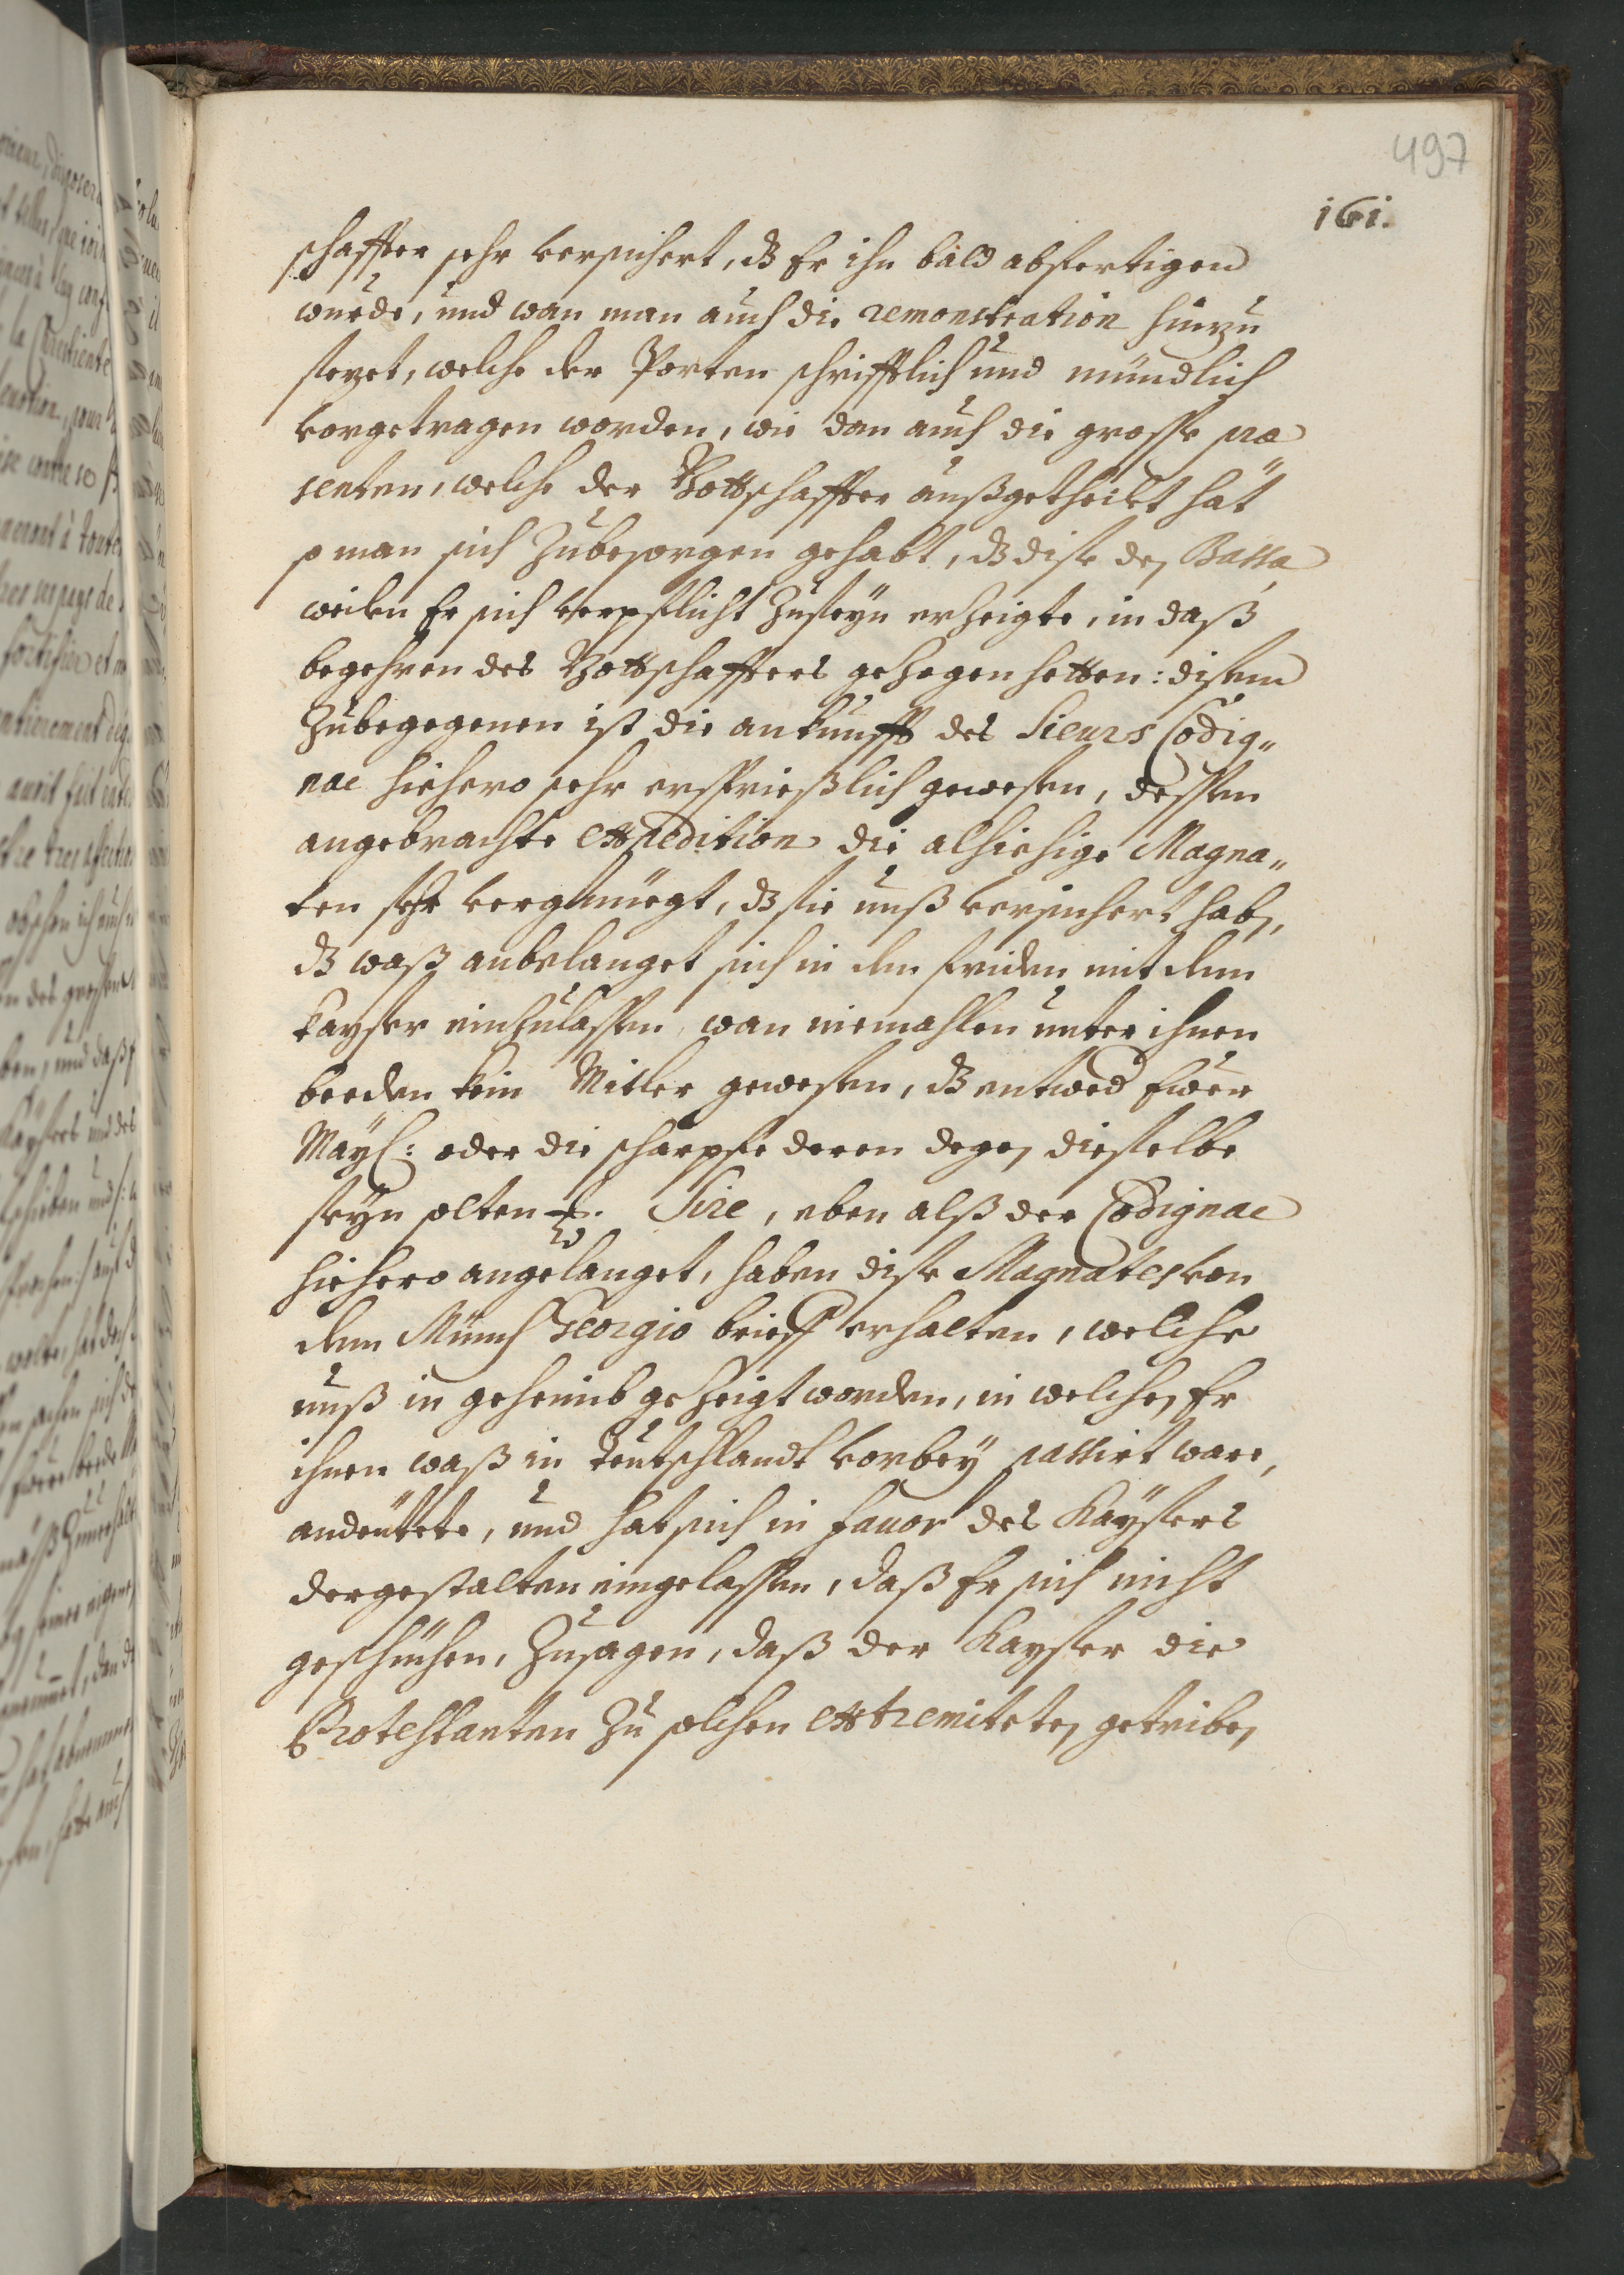 497
161.
schaffter sehr versichert, dz Er ihn bald abfertigen
wurde, und wan man auch die remonstration hinzu
sezet, welche der Porten schrifftlich und mündlich
vorgetragen worden, wie dan auch die grosse præ
senten, welche der Bottschaffter außgetheilt hat
so man sich zubesorgen gehabt, dz dise den Bassa
weilen Er sich verpflicht zuseyn erzeigte, in daß
begehren des Bottschaffters gezogen hetten: disem
zubegegenen ist die ankunfft des Sieurs Codig„
nac hiehero sehr ersprießlich gewesen, dessen
angebrachte expedition die alhiesige Magna„
ten sehr vergnüegt, dz sie unß versichert haben,
dz waß anbelanget sich in den friden mit dem
Kayser einzulassen, wan niemahlen unter ihnen
beeden kein Mitler gewesen, dz entwed Ewer
May: oder die scharpfe deren degen dieselbe
seyn solten. Sire, eben alß der Codignac
hiehero angelanget, haben dise Magnates von
dem Münch Georgio brieff erhalten, welche
unß in geheimb gezeigt worden, in welchen Er
ihnen waß in Teutschlandt vorbey passirt ware,
andeutete, und hat sich in favor des Kaysers
dergestalten eingelassen, daß Er sich nicht
geschichen, zusagen, daß der Kayser die
Protestanten zu solchen extremiteten getriben